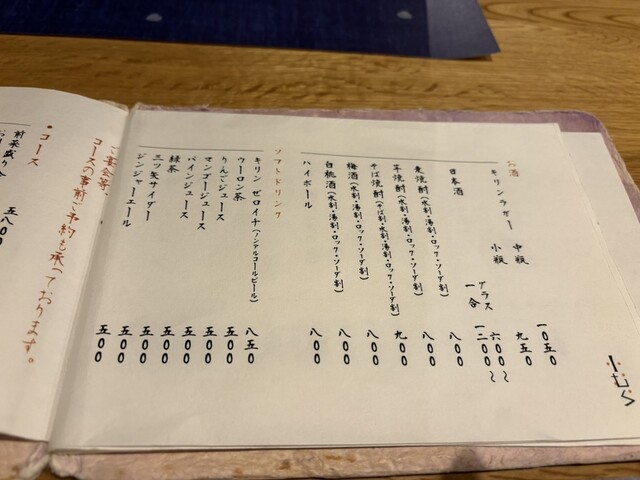 お酒
キリンラガー 中瓶 一〇五〇
小瓶 九五〇
日本酒 グラス 六〇〇〜
一合 一二〇〇〜
麦焼酎(水割・湯割・ロック・ソーダ割) 八〇〇
芋焼酎(水割・湯割・ロック・ソーダ割) 八〇〇
そば焼酎(そば割・水割・湯割・ロック・ソーダ割) 九〇〇
梅酒(水割・湯割・ロック・ソーダ割) 八〇〇
白桃酒(水割・湯割・ロック・ソーダ割) 八〇〇
ハイボール 八〇〇
ソフトドリンク
キリン ゼロイチ(ノンアルコールビール) 八五〇
ウーロン茶 五〇〇
りんごジュース 五〇〇
マンゴージュース 五〇〇
パインジュース 五〇〇
緑茶 五〇〇
三ツ矢サイダー 五〇〇
ジンジャーエール 五〇〇
ご宴会等、
コースの事前ご予約も承っております。
・コース
前菜盛り合 五八〇〇